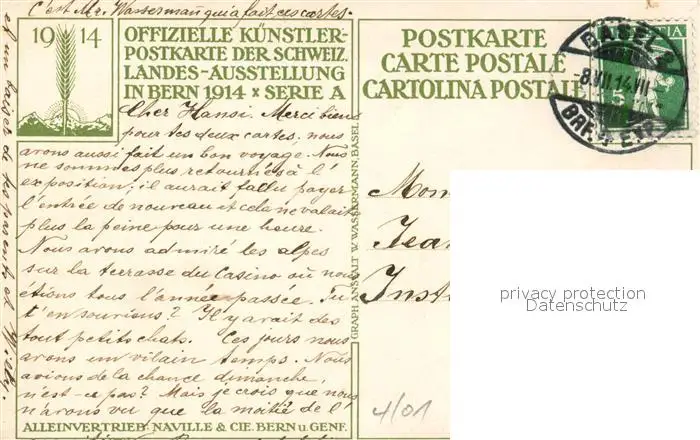 C'est Mr. Wassermann qui a fait ces cartes.
1914
OFFIZIELLE KÜNSTLER-
POSTKARTE DER SCHWEIZ.
LANDES-AUSSTELLUNG
IN BERN 1914 x SERIE A
Cher Hansi. Merci biens
pour tes deux cartes. nous
avons aussi fait un bon voyage. Nous
ne sommes plus retournés à l'
exposition; il aurait fallu payer
l'entrée de nouveau et cela ne valait
plus la peine pour une heure.
Nous avons admiré les alpes
sur la terrasse du Casino où nous
étions tous l'année passée. Tu
t'en souviens? Il y avait des
tout petits chats. Ces jours nous
avons un vilain temps. Nous
avions de la chance dimanche,
n'est-ce pas? Mais je crois que nous
n'avons vu que la moitié de l'
ALLEINVERTRIEB: NAVILLE & CIE. BERN u. GENF.
et un baiser de tes parents et
GRAPH. ANSTALT W. WASSERMANN, BASEL
POSTKARTE
CARTE POSTALE
CARTOLINA POSTALE
BASEL 2
-8.VII.14.VII
BRF. EXP.
HELVETIA
5
Mon
Jean
Inst
4/01
privacy protection
Datenschutz